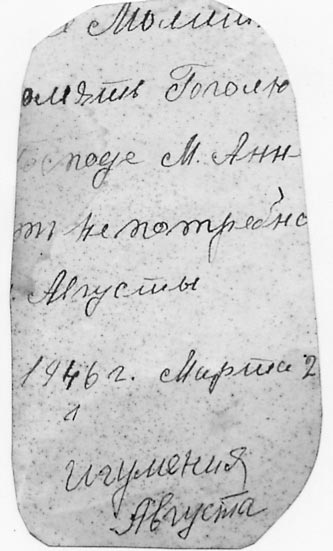 Молит
омять Гоголю
Господе М. Анн-
т непотребно
Августы
1946 г. Марта 2
игумения
Августа